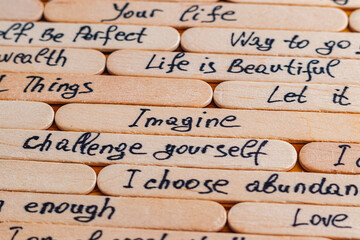 Your life
Be Perfect
Way to go
wealth
Life is Beautiful
Things
Let it
Imagine
challenge yourself
I
I choose abundan
enough
Love